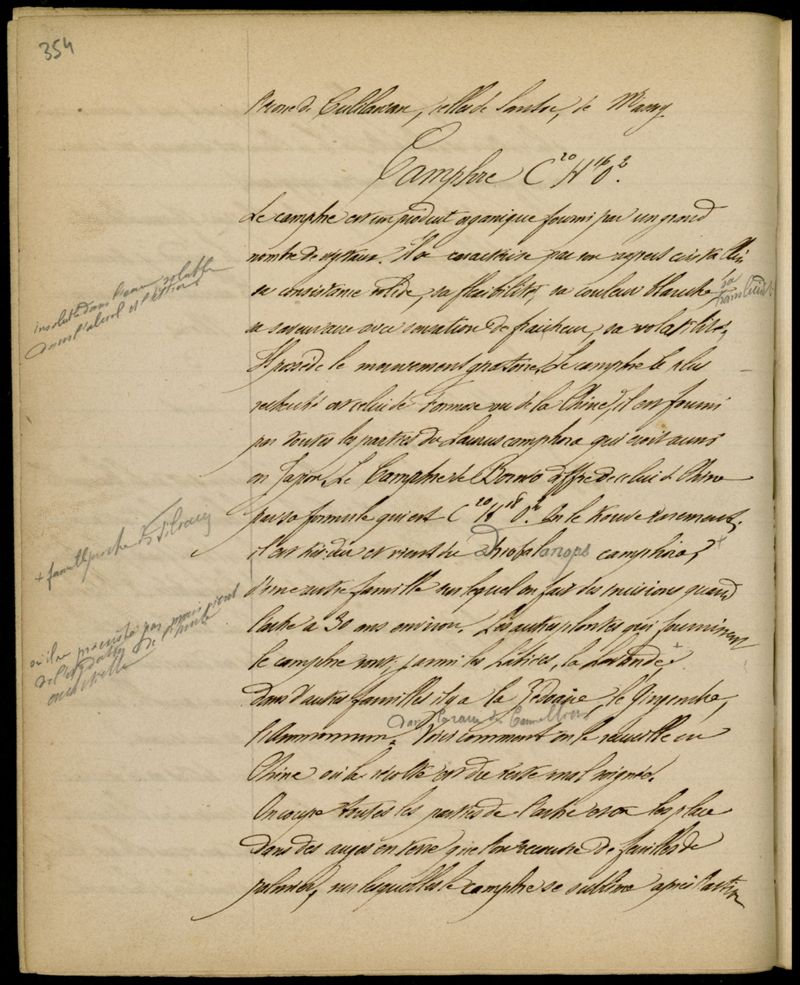 354
l'écorce de Culilawan, celle de Santou, de Massoy
Camphre C20 H16 O2.
Le camphre est un produit organique fourni par un grand
nombre de végétaux. Il a caractère par son aspect cristallin
sa consistance solide, sa flexibilité, sa couleur blanche, sa translucidité
sa saveur avec sensation de fraicheur, sa volatilité,
Il possède le mouvement giratoire. Le camphre le plus
recherché est celui de Formose ou de la Chine, il est fourni
par toutes les parties du Laurus camphora qui croit aussi
en Japon. Le Camphre de Borneo diffère de celui de Chine
par sa formule qui est C20 H18 O2. On le trouve rarement,
il est très dur et vient du Driobalanops camphora +
d'une autre famille sur lequel on fait des incisions quand
l'arbre a 30 ans environ. Les autres plantes qui fournissent
le camphre sont, parmi les Labiées, la Lavande, +
dans d'autres familles il y a la Zédoaire, le Gingembre,
dans la racine de Cannellier
l'Amomum. Voici comment on le recueille en
Chine où la récolte est du reste mal soignée.
On coupe toutes les parties de l'arbre et on les place
dans des auges en terre que l'on recouvre de feuilles de
palmier, sur lesquelles le camphre se sublime après l'action
insoluble dans l'eau, soluble
dans l'alcool et l'éther
+ famille proche des Tiliacées
de l'oxydation de l'huile